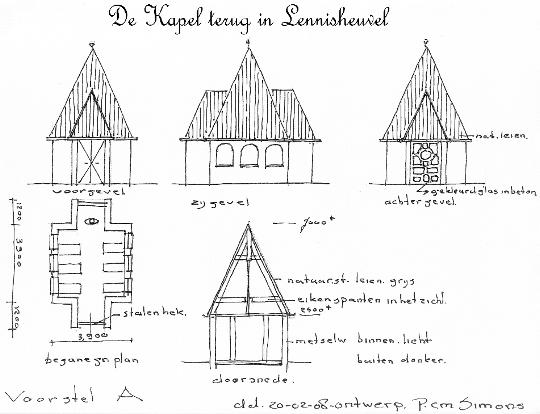 De Kapel terug in Lennisheuvel
voorgevel
zijgevel
nat. leien.
gekleurd glas in beton
achtergevel.
1200
3,900
1200
7000+
natuurst. leien. grijs
eiken spanten in het zicht.
2500+
stalen hek.
metselw binnen. licht
buiten donker.
3,900
begane gr. plan
doorsnede.
Voorstel A
dd. 20-02-08-ontwerp. P.c.m Simons